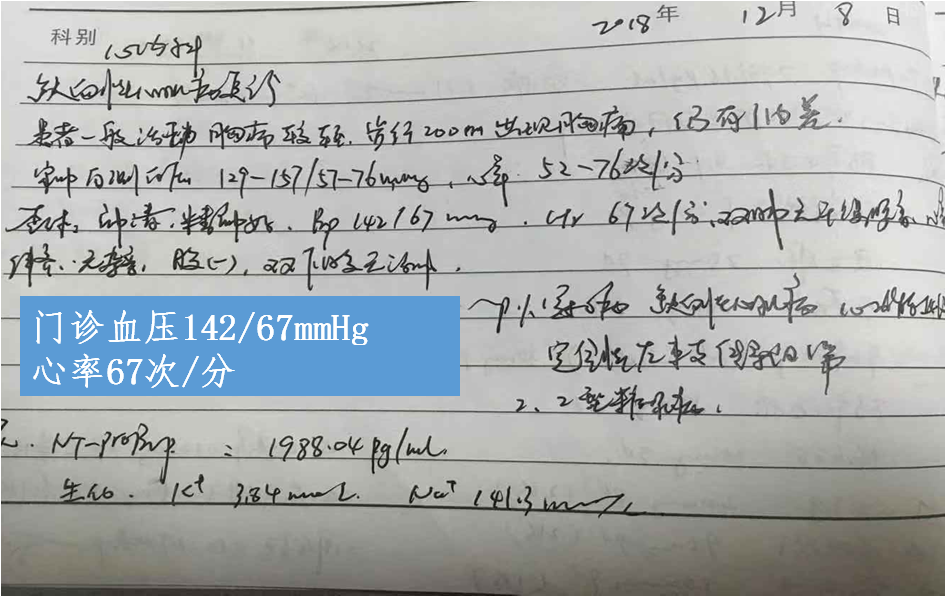 2018年 12月 8日
科别 心内科
缺血性心肌病复诊
患者一般活动 胸痛较轻. 步行200m出现胸痛,仍有
家中自测血压 129-157/57-76mmHg,心率 52-76次/分
查体:神清,精神好. Bp 142/67 mmHg. Hr 67次/分,双肺
杂音. 腹(-), 双下肢无浮肿.
门诊血压142/67mmHg
心率67次/分
缺血性心肌病
完全性左束支传导阻滞
2、2型糖尿病.
NT-proBnp : 1988.04 pg/ml.
生化. K⁺ 3.84 mmol/L. Na⁺ 141.3 mmol/L